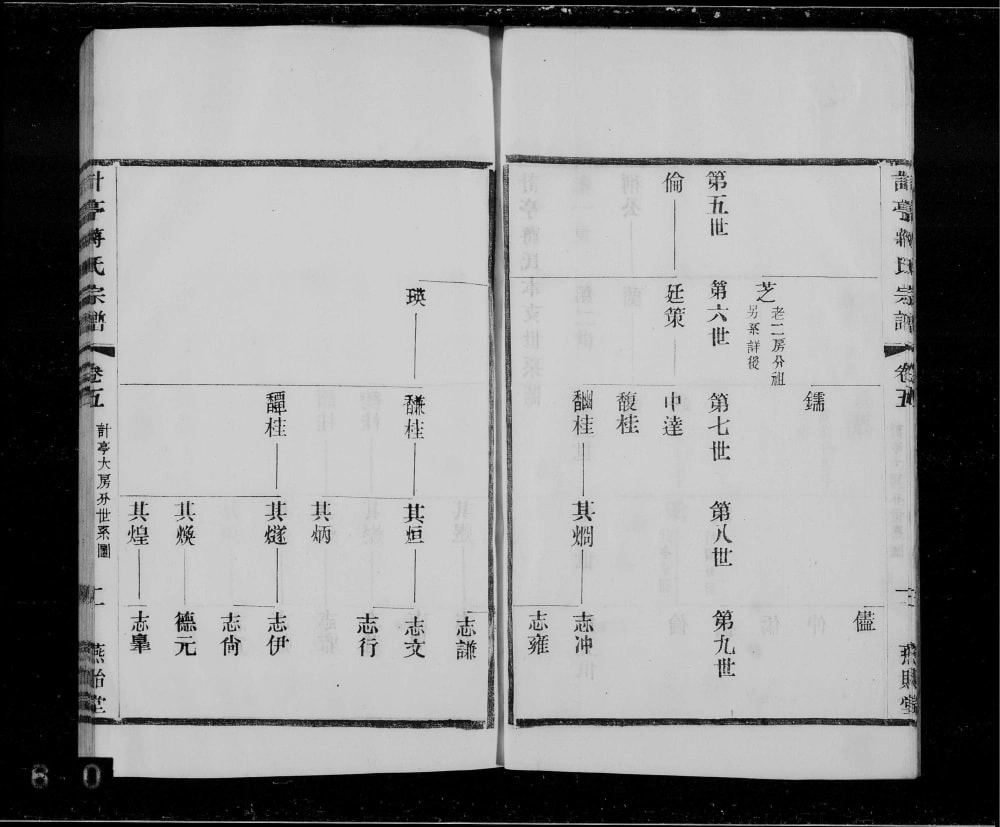 計亭蔣氏宗譜
卷五
燕貽堂
儘
鑐
芝
老二房分祖
另系詳後
第五世
第六世
第七世
第八世
第九世
倫
廷策
中達
馥桂
其燗
志冲
志雍
計亭蔣氏宗譜
卷五
計亭大房分世系圖
二
燕貽堂
志謙
瑛
馦桂
其烜
志文
志行
其炳
其燧
志伊
志尙
其煥
德元
其煌
志臯
60